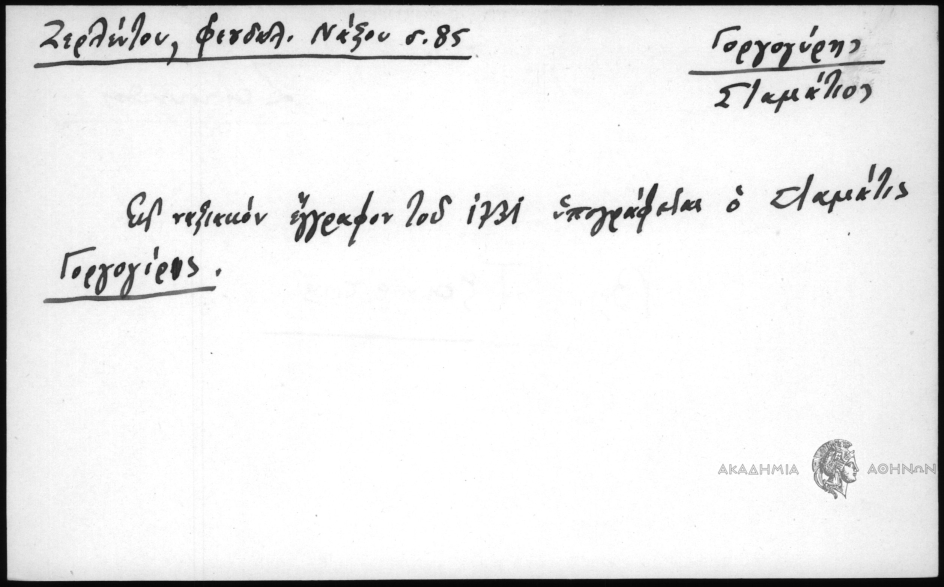 Ζερλέντου, φεουδαλ. Νάξου σ. 85
Γοργογύρης
Σταμάτιος
Εις ναξιακόν έγγραφον του 1731 υπογράφεται ὁ Σταμάτις
Γοργογύρης.
ΑΚΑΔΗΜΙΑ ΑΘΗΝΩΝ